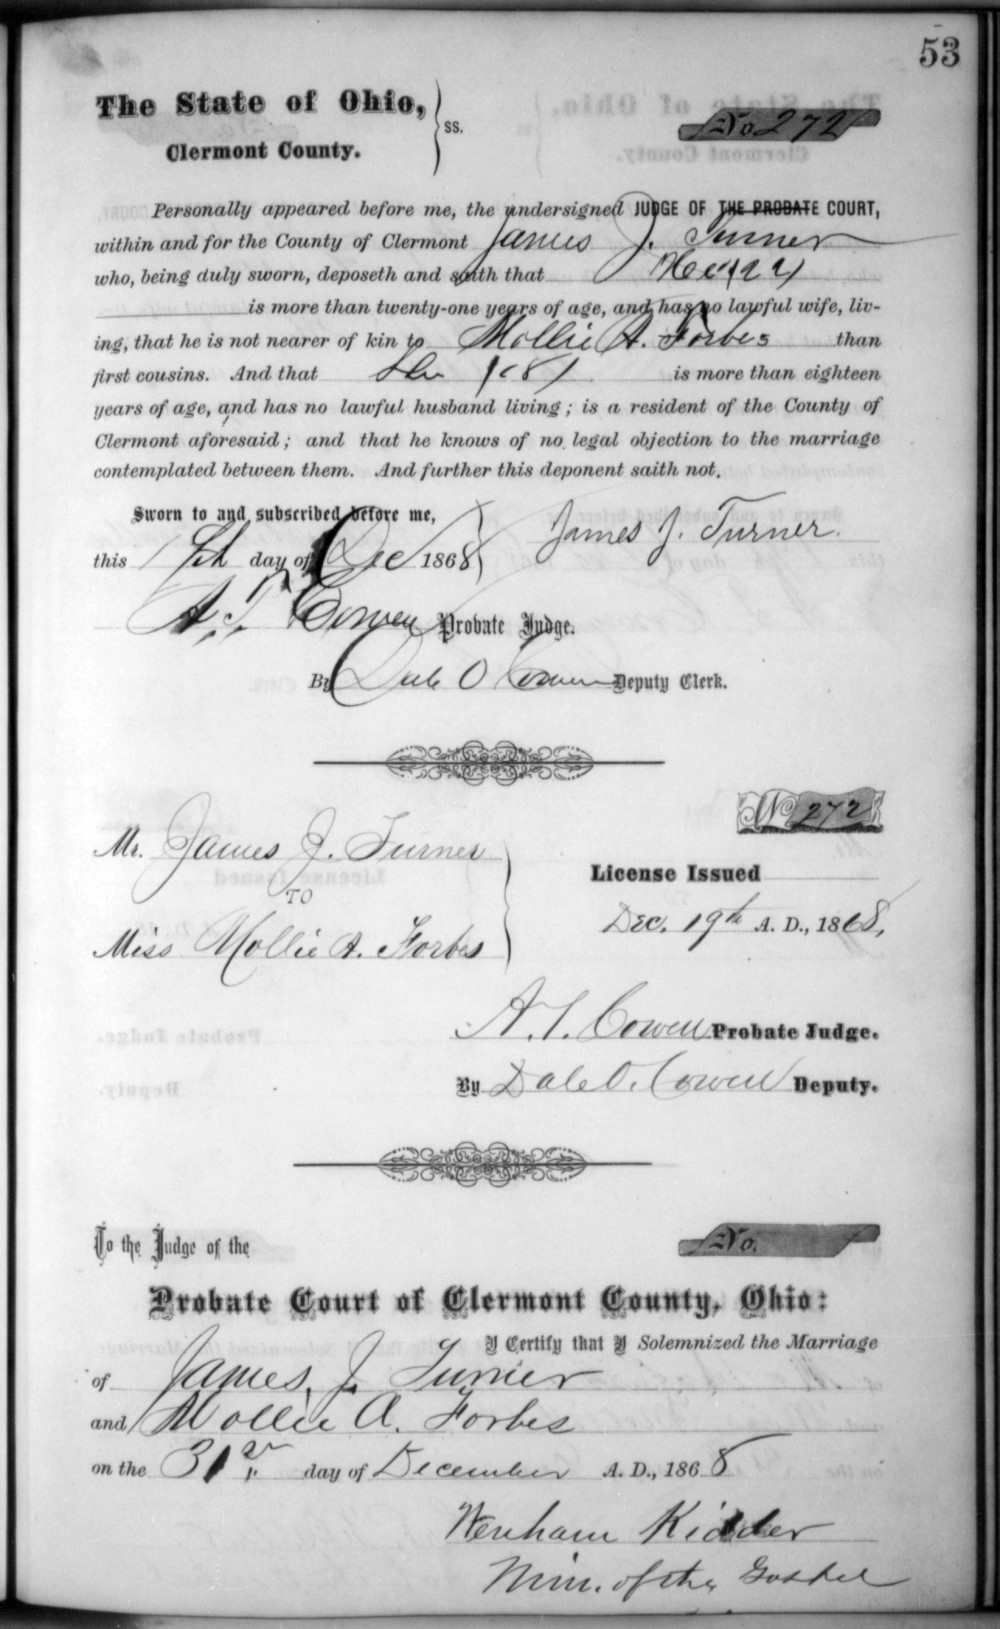 53
The State of Ohio,
ss.
Clermont County.
No. 272
Personally appeared before me, the undersigned JUDGE OF THE PROBATE COURT,
within and for the County of Clermont James J. Turner
who, being duly sworn, deposeth and saith that He (22)
is more than twenty-one years of age, and has no lawful wife, liv-
ing, that he is not nearer of kin to Mollie A. Forbes than
first cousins. And that She (18) is more than eighteen
years of age, and has no lawful husband living; is a resident of the County of
Clermont aforesaid; and that he knows of no legal objection to the marriage
contemplated between them. And further this deponent saith not.
Sworn to and subscribed before me,
this 19th day of Dec 1868
James J. Turner.
A. T. Cowen Probate Judge.
By Dale O Cowen Deputy Clerk.
No 272
Mr. James J. Turner
TO
Miss Mollie A. Forbes
License Issued
Dec. 19th A. D., 1868,
A. T. Cowen Probate Judge.
By Dale O. Cowen Deputy.
To the Judge of the
No.
Probate Court of Clermont County, Ohio:
I Certify that I Solemnized the Marriage
of James J. Turner
and Mollie A. Forbes
on the 31st day of December A. D., 1868
Wenham Kidder
Min. of the Gospel